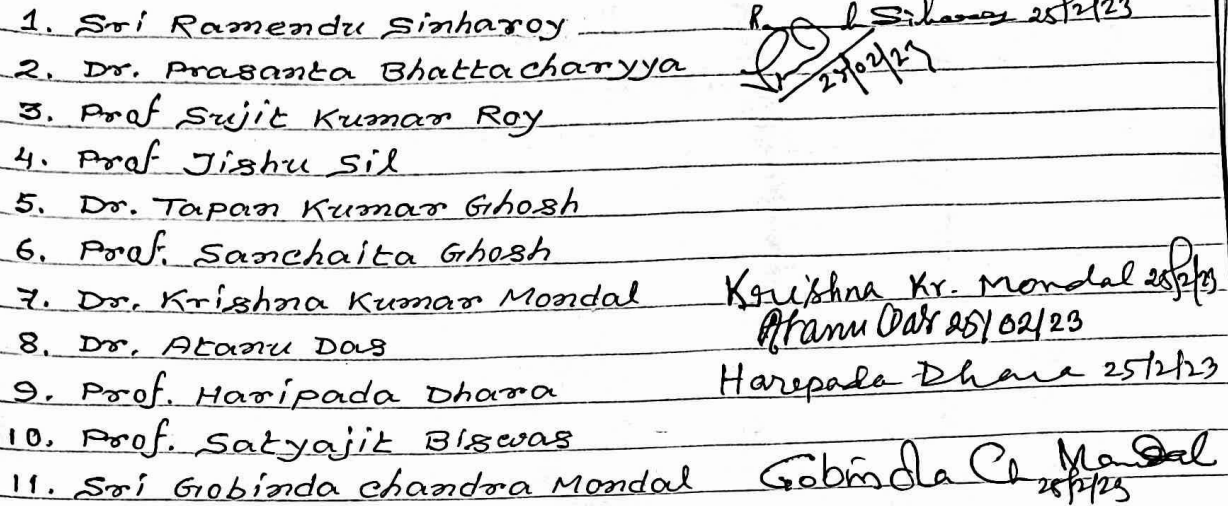 1. Sri Ramendu Sinharoy 25/2/23
2. Dr. Prasanta Bhattacharyya
3. Prof Sujit Kumar Roy
4. Prof Jishu Sil
5. Dr. Tapan Kumar Ghosh
6. Prof. Sanchaita Ghosh
7. Dr. Krishna Kumar Mondal Krishna Kr. Mondal 25/2/23
8. Dr. Atanu Das Atanu Das 25/02/23
9. Prof. Haripada Dhara Haripada Dhara 25/2/23
10. Prof. Satyajit Biswas
11. Sri Gobinda Chandra Mondal Gobinda Ch Mondal 25/2/23